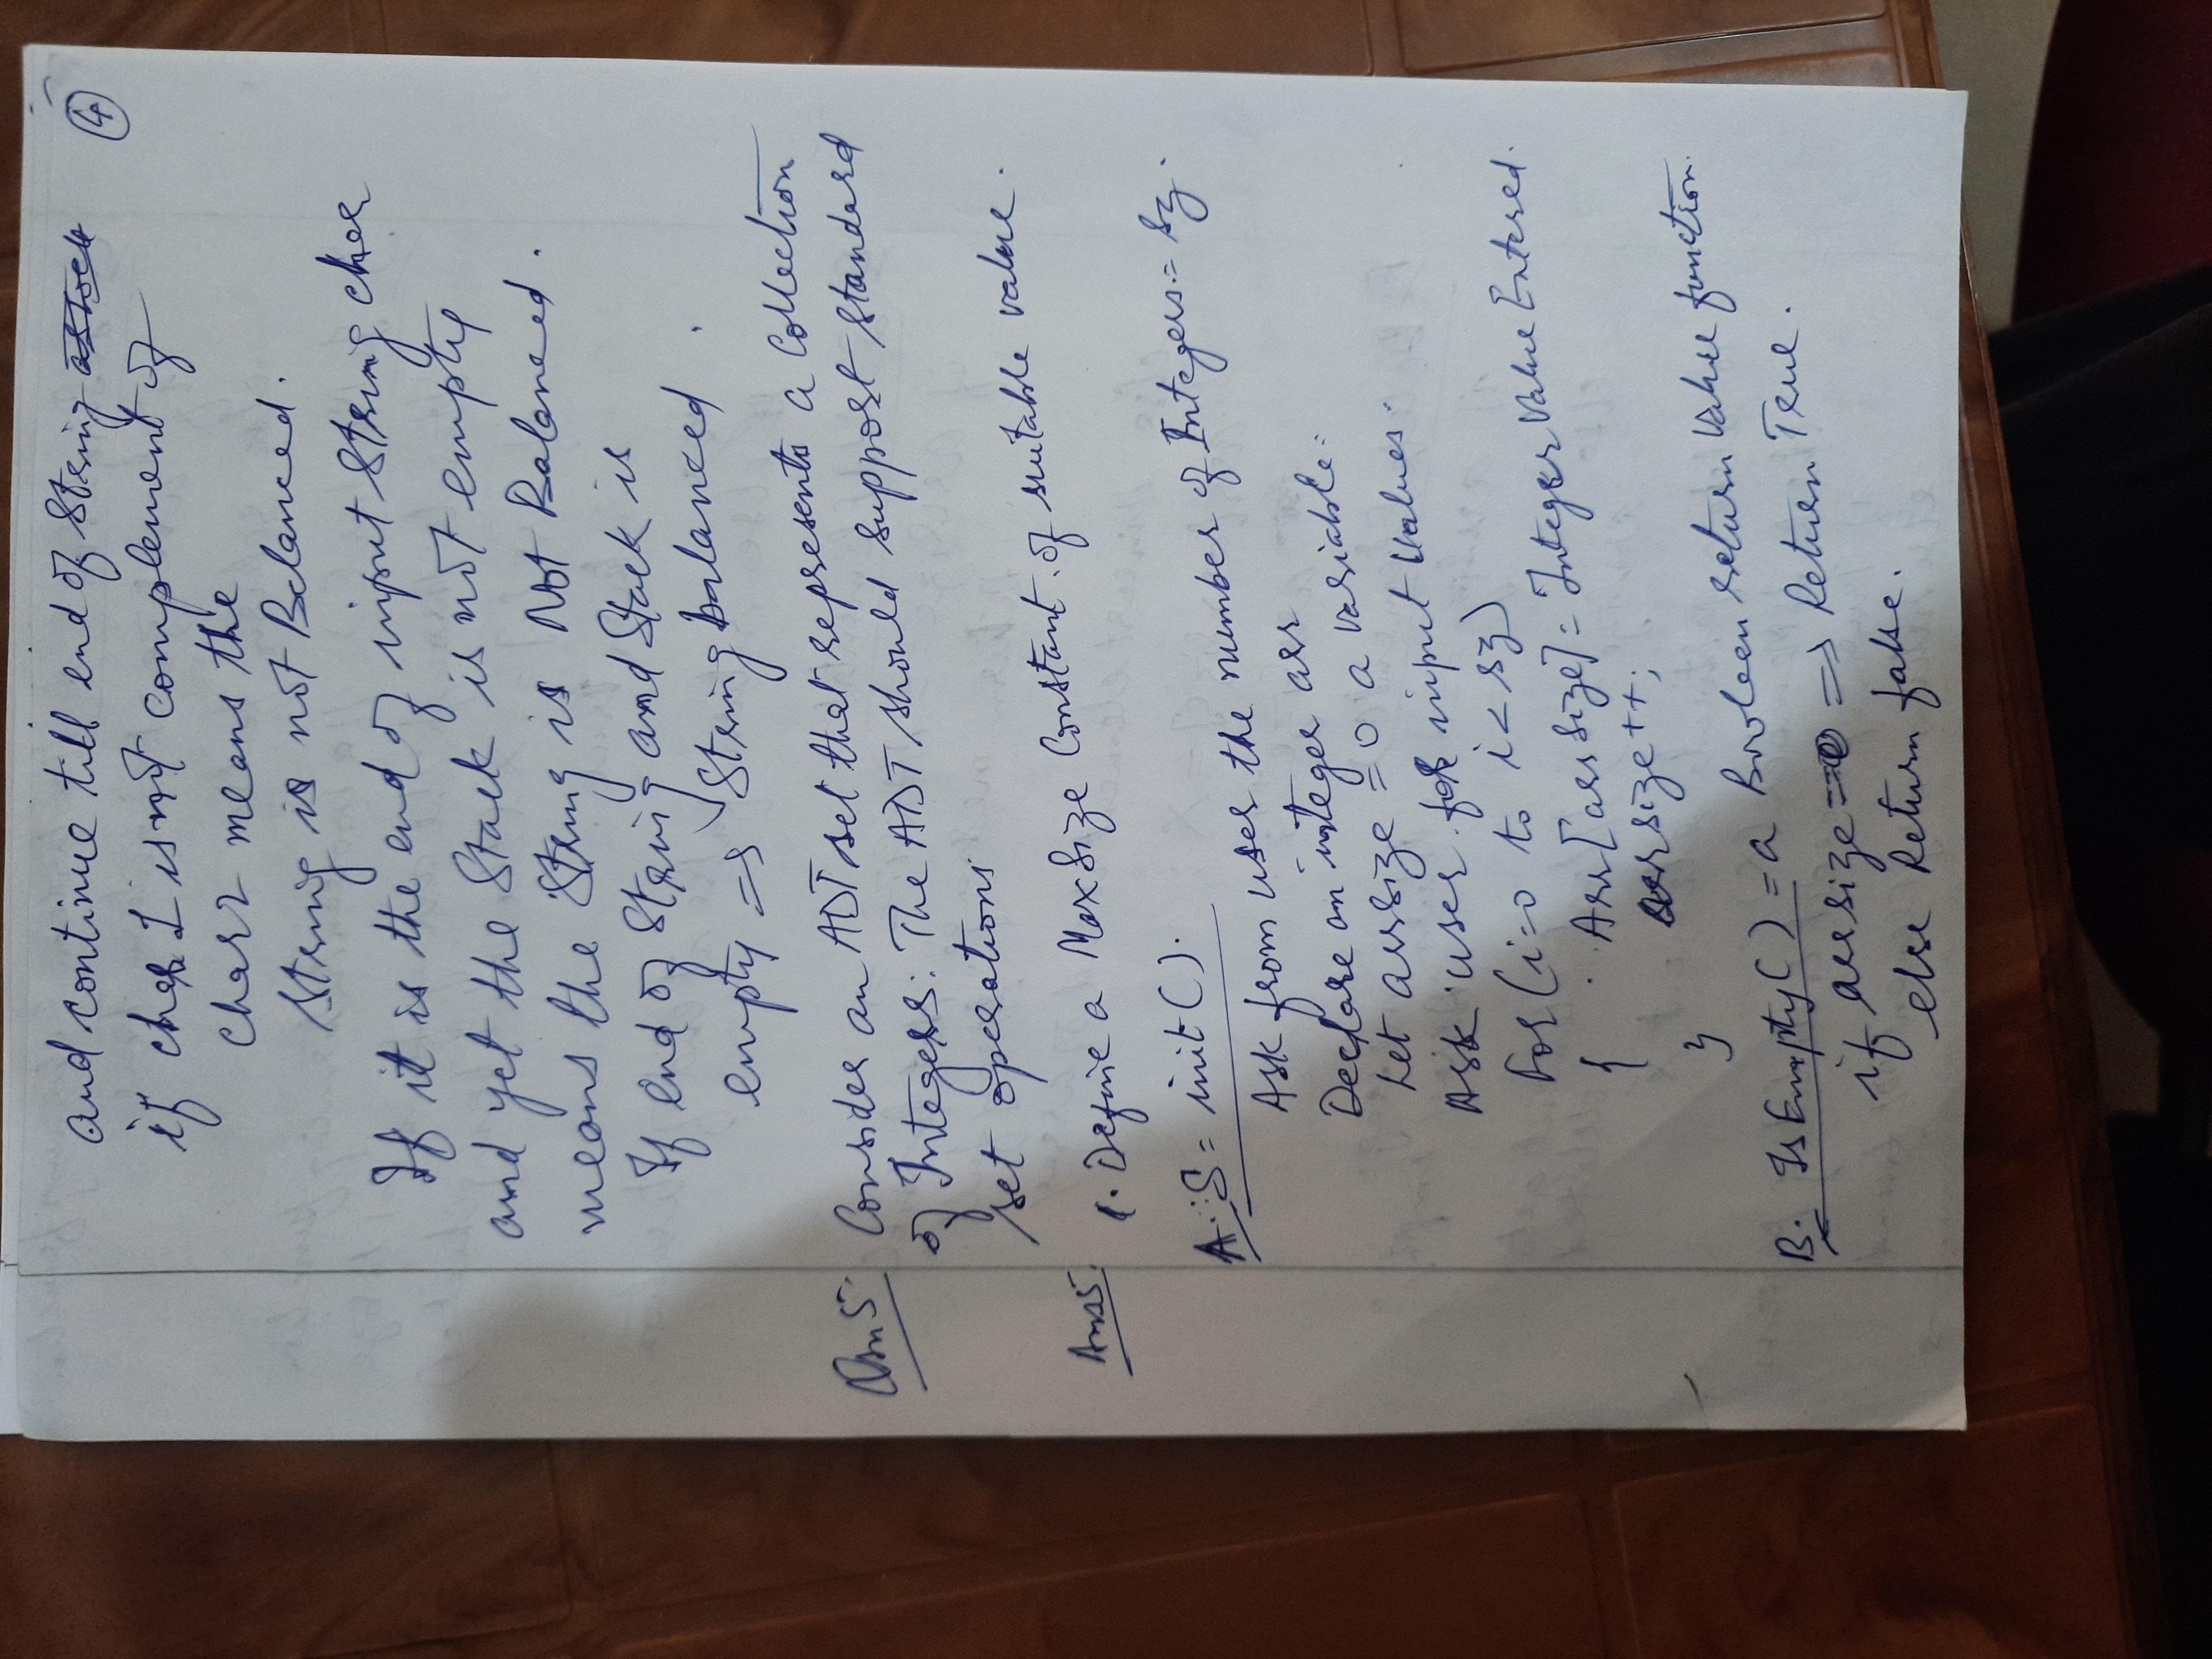 ④
and continue till end of String
if char 1 is not complement of
char2 means the
String is not Balanced.
If it is the end of input String char
and yet the Stack is not empty
means the String is Not Balanced.
If end of String and Stack is
empty => String balanced.
Qsn5. Consider an ADT set that represents a Collection
of Integers: The ADT should support standard
set operations
Ans5. 1. Define a MaxSize Constant of suitable value.
A. S = init().
Ask from user the number of Integers = sz.
Declare an integer arr
Let arrsize = 0 a variable.
Ask user for input Values.
For (i=0 to i < sz)
{ Arr[arrsize] = Integer Value Entered.
arrsize++;
}
B. IsEmpty() = a Boolean return Value function.
if arrsize == 0 => Return True.
else Return false.